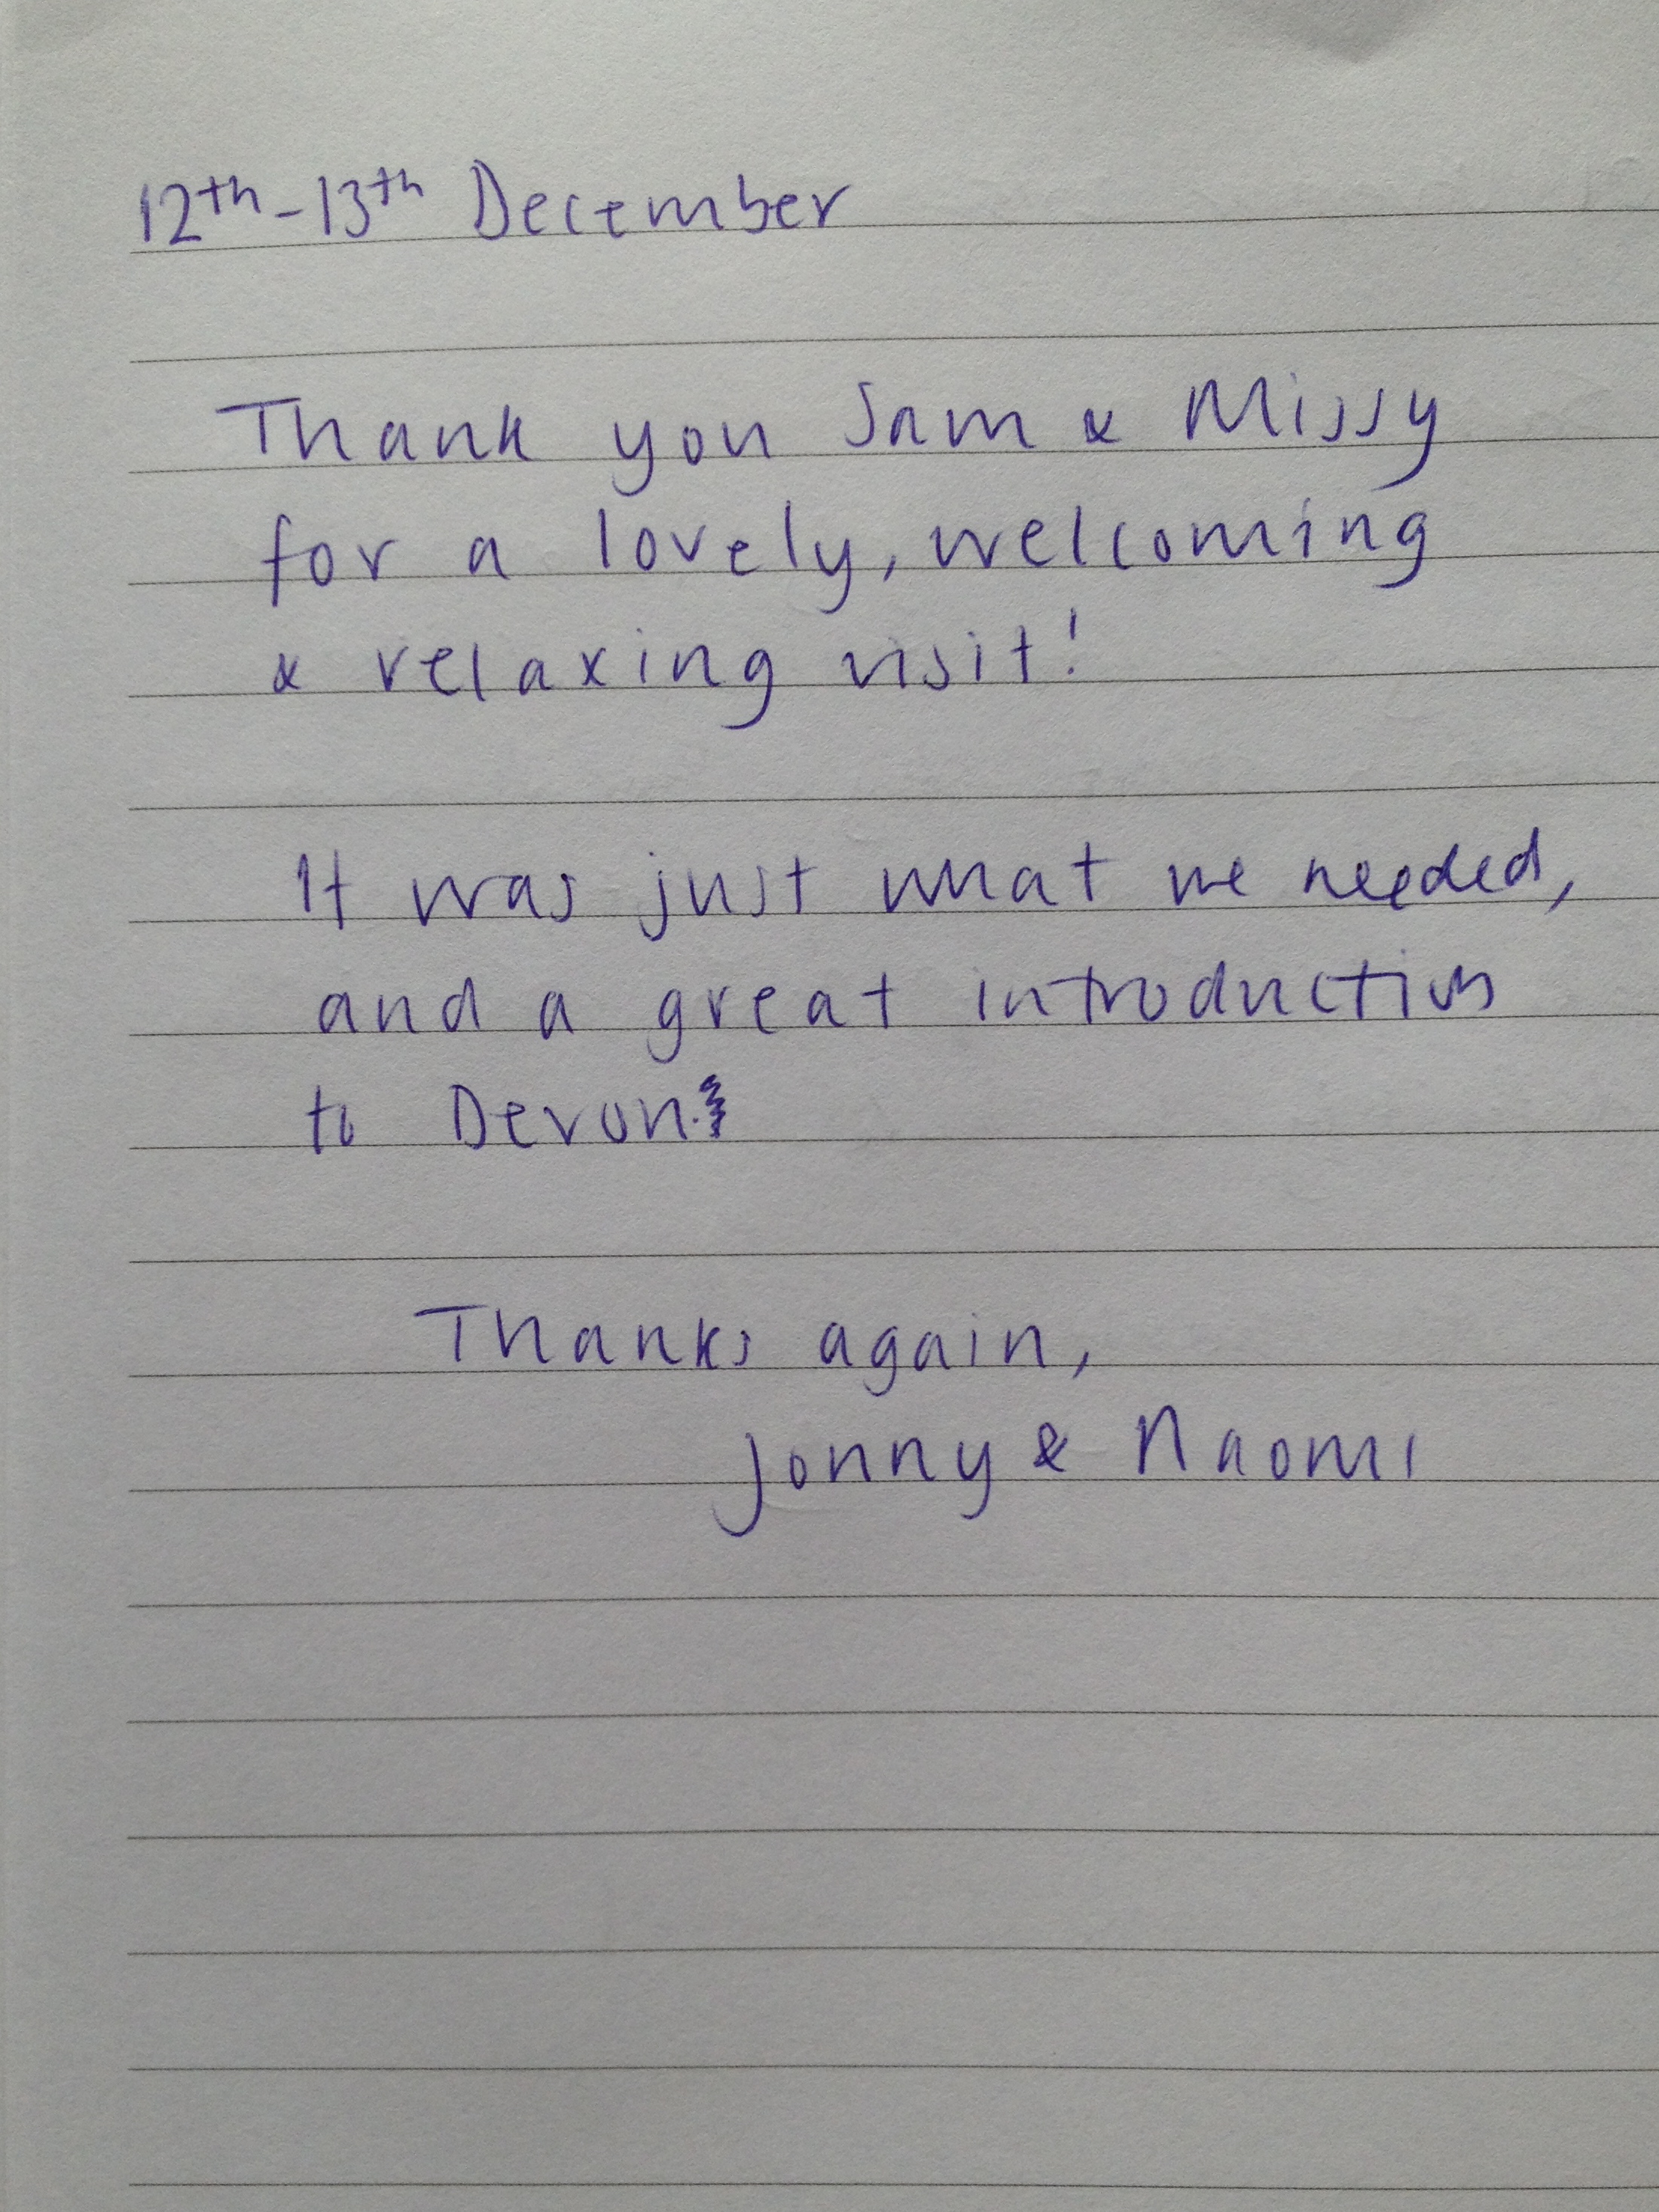 12th-13th December
Thank you Sam & Missy
for a lovely, welcoming
& relaxing visit!
It was just what we needed,
and a great introduction
to Devon.
Thanks again,
Jonny & Naomi